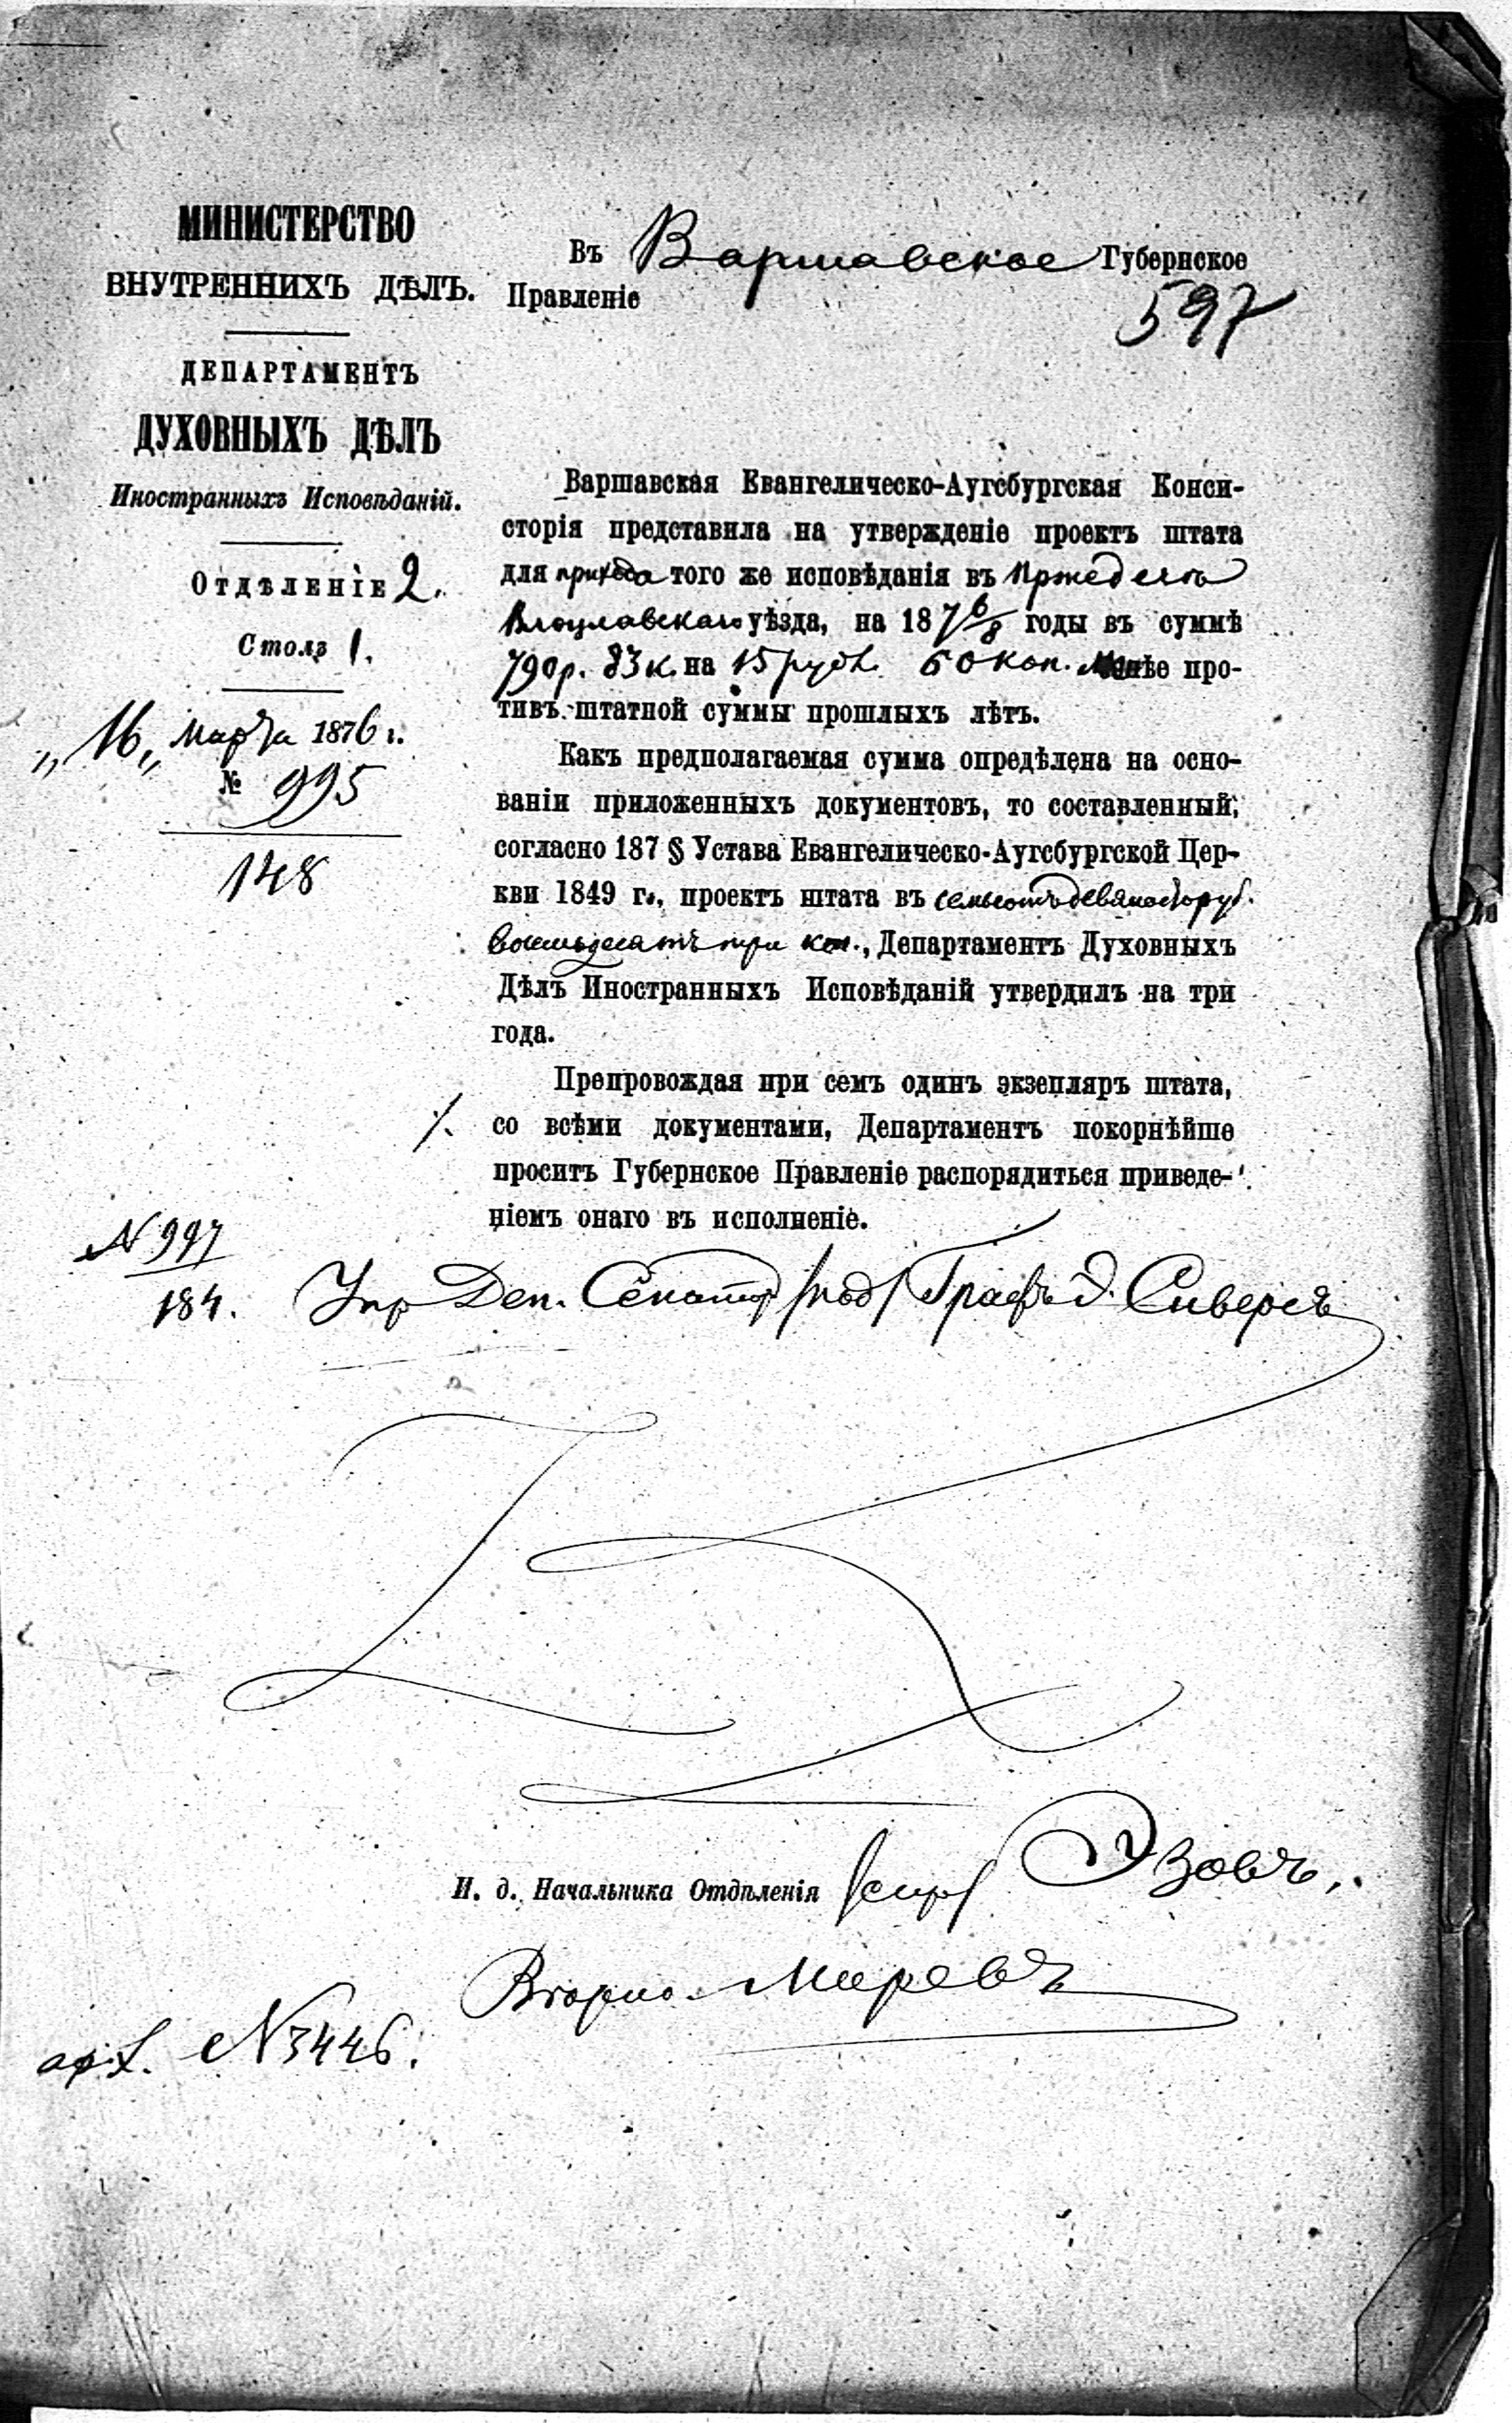 МИНИСТЕРСТВО
ВНУТРЕННИХЪ ДѢЛЪ.
ДЕПАРТАМЕНТЪ
ДУХОВНЫХЪ ДѢЛЪ
Иностранныхъ Исповѣданій.
ОТДѢЛЕНІЕ 2.
Столъ 1.
„16„ Марта 1876 г.
№ 995
148
Въ Варшавское Губернское
Правленіе
597
Варшавская Евангелическо-Аугсбургская Конси-
сторія представила на утвержденіе проектъ штата
для прихода того же исповѣданія въ Пржедечъ
Влоцлавскаго уѣзда, на 187 6/8 годы въ суммѣ
790 р. 83 к. на 15 руб. 60 коп. менѣе про-
тивъ штатной суммы прошлыхъ лѣтъ.
Какъ предполагаемая сумма опредѣлена на осно-
ваніи приложенныхъ документовъ, то составленный,
согласно 187 § Устава Евангелическо-Аугсбургской Цер-
кви 1849 г., проектъ штата въ семьсотъ девяносто руб.
восемьдесятъ три коп., Департаментъ Духовныхъ
Дѣлъ Иностранныхъ Исповѣданій утвердилъ на три
года.
Препровождая при семъ одинъ экзепляръ штата,
со всѣми документами, Департаментъ покорнѣйше
проситъ Губернское Правленіе распорядиться приведе-
ніемъ онаго въ исполненіе.
N 997
184.
Упр Деп. Сенаторъ /под/ Графъ Э. Сиверсъ
И. д. Начальника Отдѣленія /скр/ Эзовъ.
Вѣрно:
N 3446.